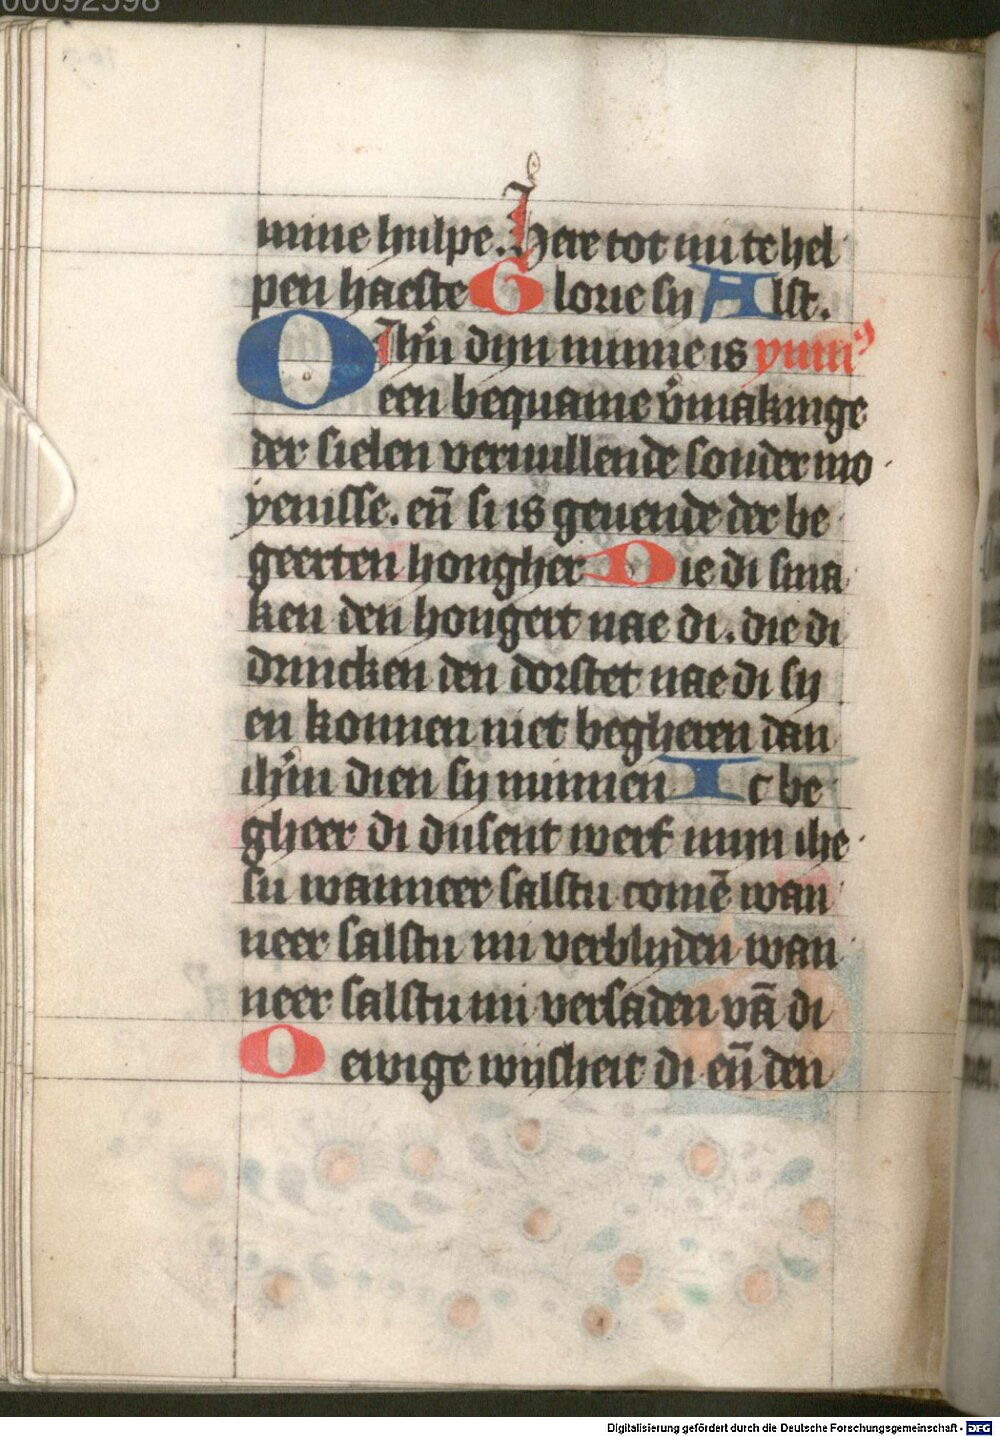 00092598
mine hulpe. Here tot mi te hel
pen haeste Glorie sy Alst.
O Ihũ dyn minne is ymn⁹
een bequame v̾makinge
der sielen vervullende sonder mo
yenisse. eñ si is gevende der be
geerten hongher Die di sma
ken den hongert nae di. die di
drincken den dorstet nae di sy
en konnen niet begheren dan
ihm̄ dien sy minnen Ic be
gheer di dusent werf mijn ihe
su wanneer salstu comē wan
neer salstu mi verblyden wan
neer salstu mi versaden vā di
O ewige wijsheit di eñ den
Digitalisierung gefördert durch die Deutsche Forschungsgemeinschaft - DFG